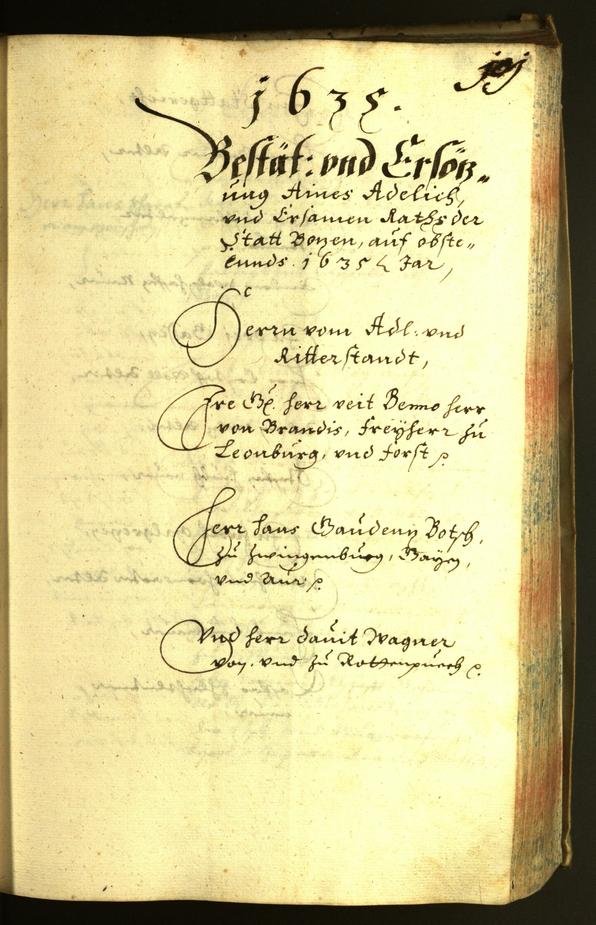 1635.
Bestät: vnd Ersöz-
ung Aines Adelich,
vnd Ersamen Raths der
Statt Bozen, auf obste-
eunds 1635 Jar,
Herrn vom Adl: vnd
Ritterstandt,
Ire Gn. herr veit Benno herr
von Brandis, Freÿherr zu
Leonburg, vnd Forst
Herr hans Gaudenz Botsch,
zu Zwingenburg,
vnd Aur
Vnd herr dauit Wagner
von vnd zu Rottenpuech